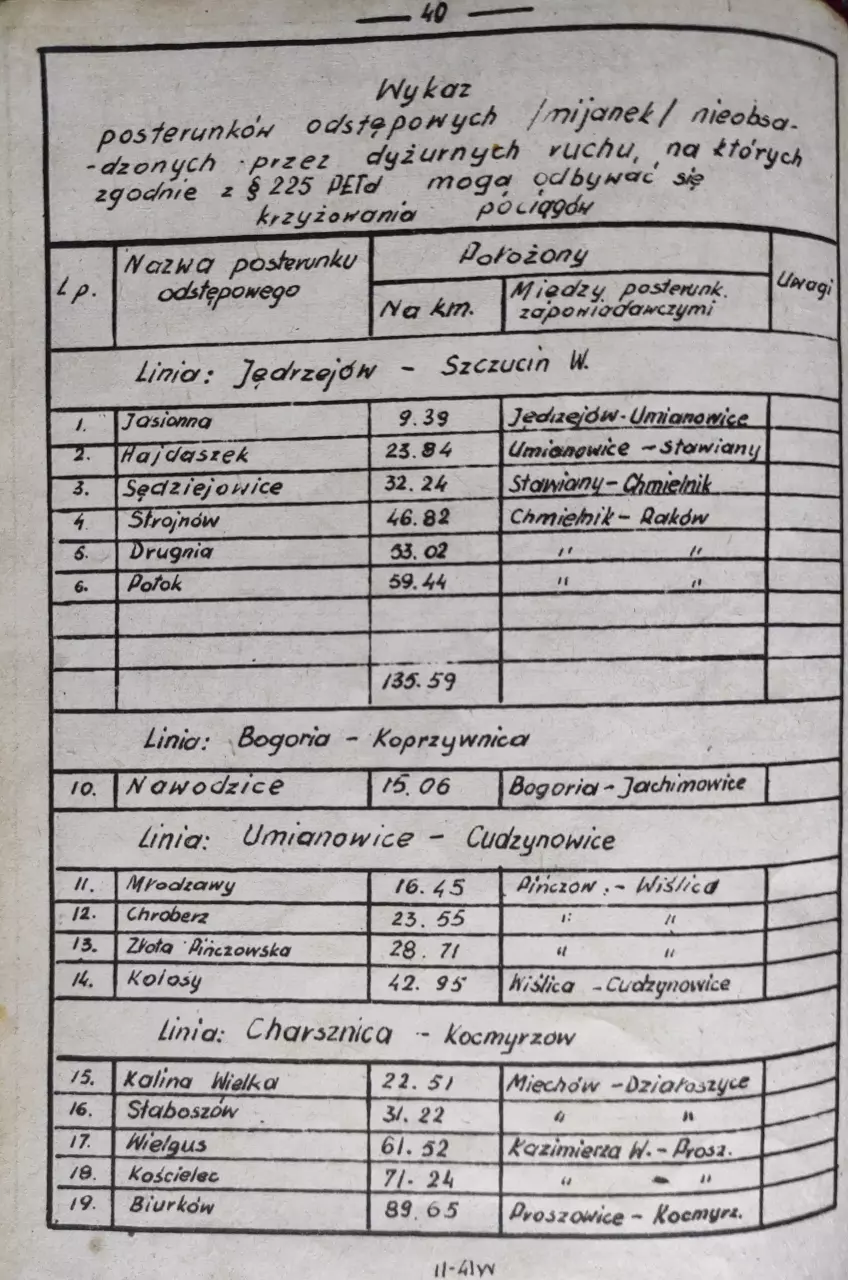 — 40 —
Wykaz
posterunków odstępowych /mijanek/ nieobsa-
-dzonych przez dyżurnych ruchu, na których
zgodnie z § 225 PETd mogą odbywać się
krzyżowania pociągów
Lp. Nazwa posterunku odstępowego Położony Uwagi
Na km. Między posterunk. zapowiadawczymi
Linia: Jędrzejów - Szczucin W.
1. Jasionna 9.39 Jędrzejów - Umianowice
2. Hajdaszek 23.84 Umianowice - Stawiany
3. Sędziejowice 32.24 Stawiany - Chmielnik
4 Strojnów 46.82 Chmielnik - Raków
5. Drugnia 53.02 " "
6. Potok 59.44 " "
135.59
Linia: Bogoria - Koprzywnica
10. Nawodzice 15.06 Bogoria - Jachimowice
Linia: Umianowice - Cudzynowice
11. Mrodzawy 16.45 Pińczow - Wiślica
12. Chroberz 23.55 " "
13. Złota Pińczowska 28.71 " "
14. Kolosy 42.95 Wiślica - Cudzynowice
Linia: Charsznica - Kocmyrzow
15. Kalina Wielka 22.51 Miechów - Działoszyce
16. Słaboszów 31.22 " "
17. Wielgus 61.52 Kazimierza W. - Prosz.
18. Kościelec 71.24 " - "
19. Biurków 89.65 Proszowice - Kocmyrz.
11-41W